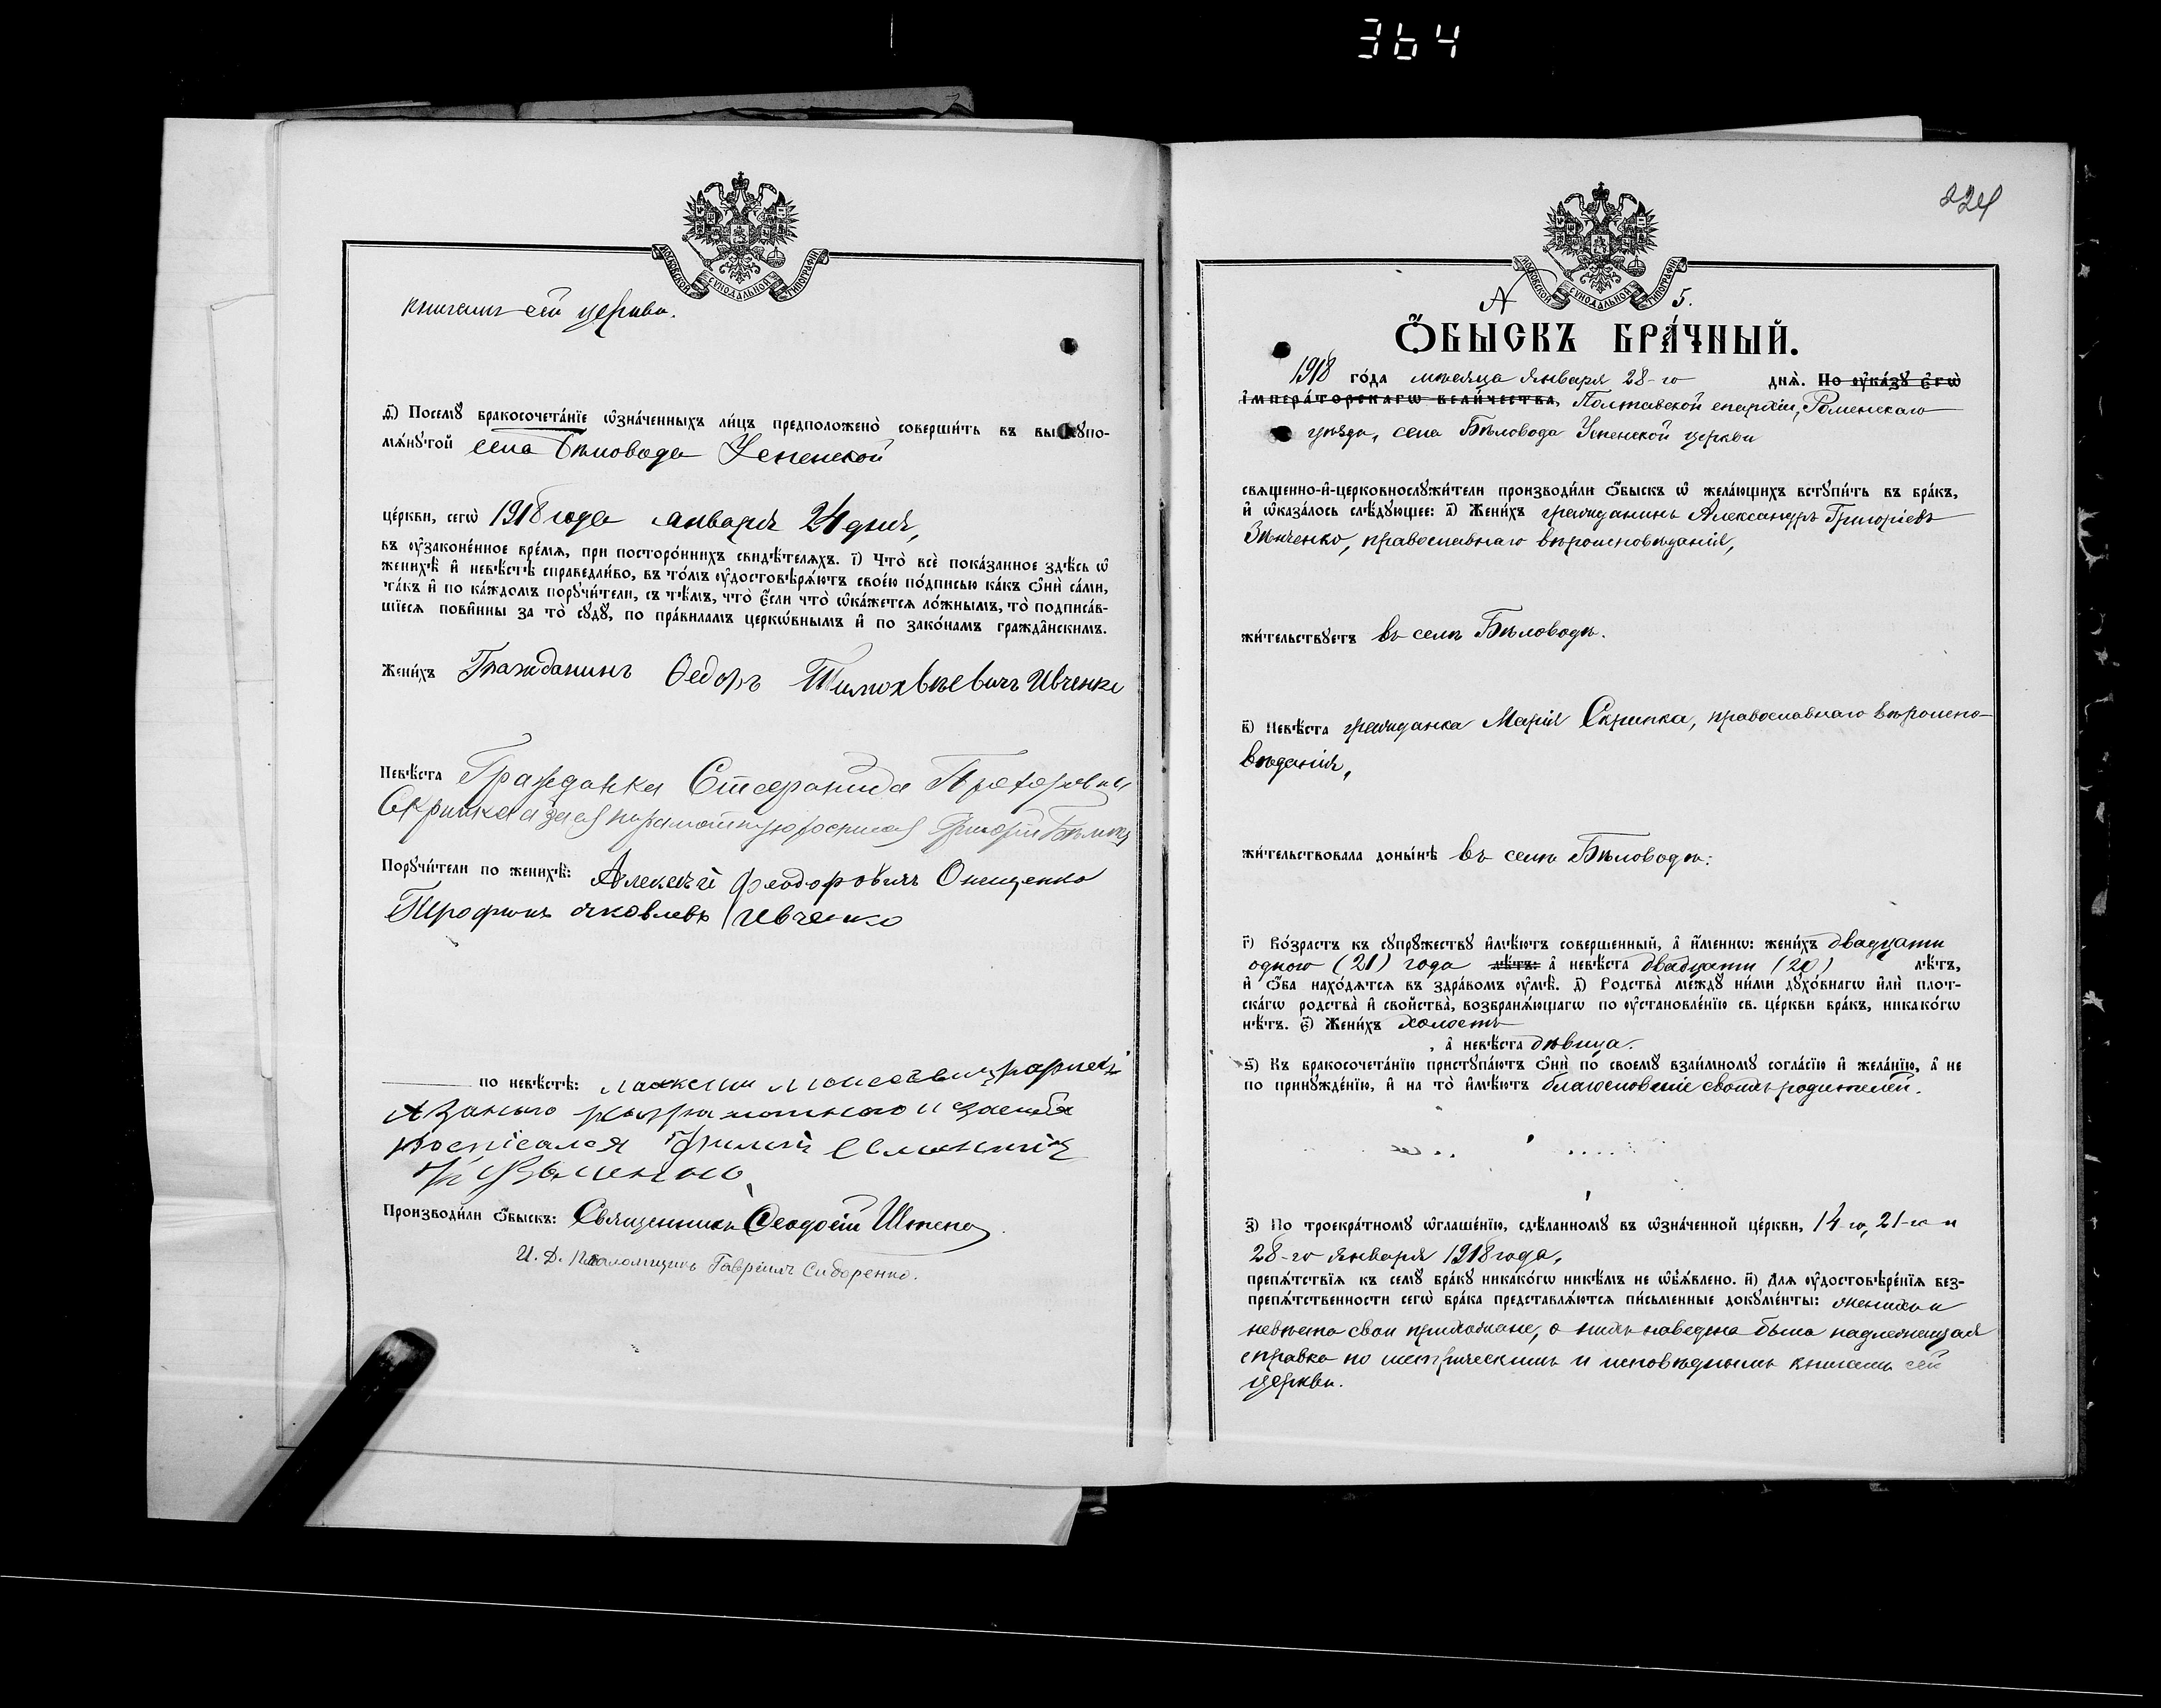 364
МОСКОВСКОЙ СѴНОДАЛЬНОЙ ТИПОГРАФІИ
книгамъ сей церкви.
ѳ҃) Посемꙋ̀ бракосочета́нїе ѡ҆зна́ченныхъ ли́цъ предположено̀ соверши́ть въ вышеꙋпо-
мѧ́нꙋтой села Бѣловода Успенской
це́ркви, сегѡ̀ 1918 года января 24 дня,
въ ᲂу҆зако́нѣнное вре́мѧ, при посторо́ннихъ свидѣ́телѧхъ. і҃) Что̀ всѐ пока́занное здѣ́сь ѡ҆
женихѣ̀ и҆ невѣ́стѣ справедли́во, въ то́мъ ᲂу҆достовѣрѧ́ютъ свое́ю по́дписью ка́къ ѻ҆нѝ са́ми,
та́къ и҆ по ка́ждомъ порꙋчи́тели, съ тѣ́мъ, что̀ є҆́сли что̀ ѡ҆ка́жетсѧ ло́жнымъ, то̀ подписа́в-
шїесѧ пови́нны за то̀ сꙋдꙋ̀, по пра́виламъ церко́внымъ и҆ по зако́намъ гражда́нскимъ.
Жени́хъ Гражданинъ Ѳедоръ Тимоѳѣевичъ Ивченко
Невѣ́ста Гражданка Стефанида Прохоровна
Скрипка а за ея неграмотную росписался Григорій
Порꙋчи́тели по женихѣ̀: Алексѣй Феодоровичъ Онищенко
Трофимъ Яковлевъ Ивченко
по невѣ́стѣ: Максим Моисеевич
А за него неграмотного и за себя
росписался
Производи́ли ѻ҆́быскъ: Священникъ Ѳеодосій Штепа
И. Д. Псаломщикъ Гавріилъ Сидоренко.
224
МОСКОВСКОЙ СѴНОДАЛЬНОЙ ТИПОГРАФІИ
А 5.
Ѻ҆́БЫСКЪ БРА́ЧНЫЙ.
1918 го́да мѣсяца января 28-го днѧ̀. По ᲂу҆ка́зꙋ є҆гѡ̀
і҆мпера́торскагѡ вели́чества, Полтавской епархіи, Роменскаго
уѣзда, села Бѣловода Успенской церкви
свѧще́нно-и҆-церковнослꙋжи́тели производи́ли ѻ҆́быскъ ѡ҆ жела́ющихъ встꙋпи́ть въ бра́къ,
и҆ ѡ҆каза́лось слѣ́дꙋющее: а҃) Жени́хъ гражданинъ Александръ Григоріевъ
Зѣнченко, православнаго вѣроисповѣданія,
жи́тельствꙋетъ въ селѣ Бѣловодѣ.
в҃) Невѣ́ста гражданка Марія Скрипка, православнаго вѣроиспо-
вѣданія,
жи́тельствовала доны́нѣ въ селѣ Бѣловодѣ.
г҃) Во́зрастъ къ сꙋпрꙋ́жествꙋ и҆мѣ́ютъ соверше́нный, а҆ и҆́меннѡ: жени́хъ двадцати
одного (21) года лѣ́тъ: а҆ невѣ́ста двадцати (20) лѣ́тъ,
и҆ ѻ҆́ба нахо́дѧтсѧ въ здра́вомъ ᲂу҆мѣ̀. д҃) Родства̀ ме́ждꙋ ни́ми дꙋхо́внагѡ и҆лѝ плот-
ска́гѡ родства̀ и҆ сво́йства, возбранѧ́ющагѡ по ᲂу҆становле́нїю св. це́ркви бра́къ, никако́гѡ
нѣ́тъ. є҃) Жени́хъ холостъ
, а҆ невѣ́ста дѣвица.
ѕ҃) Къ бракосочета́нїю пристꙋпа́ютъ ѻ҆нѝ по своемꙋ̀ взаи́мномꙋ согла́сїю и҆ жела́нїю, а҆ не
по принꙋжде́нїю, и҆ на то̀ и҆мѣ́ютъ благословеніе своихъ родителей.
з҃) По троекра́тномꙋ ѡ҆глаше́нїю, сдѣ́ланномꙋ въ ѡ҆зна́ченной це́ркви, 14-го, 21-го и
28-го января 1918 года,
препѧ́тствїѧ къ семꙋ̀ бра́кꙋ никако́гѡ никѣ́мъ не ѡ҆б̾ѧ́влено. и҃) Длѧ ᲂу҆достовѣре́нїѧ без-
препѧ́тственности сегѡ̀ бра́ка представлѧ́ютсѧ пи́сьменные докꙋме́нты: женихъ и
невѣста свои прихожане, о нихъ наведена была надлежащая
справка по метрическимъ и исповѣднымъ книгамъ сей
церкви.